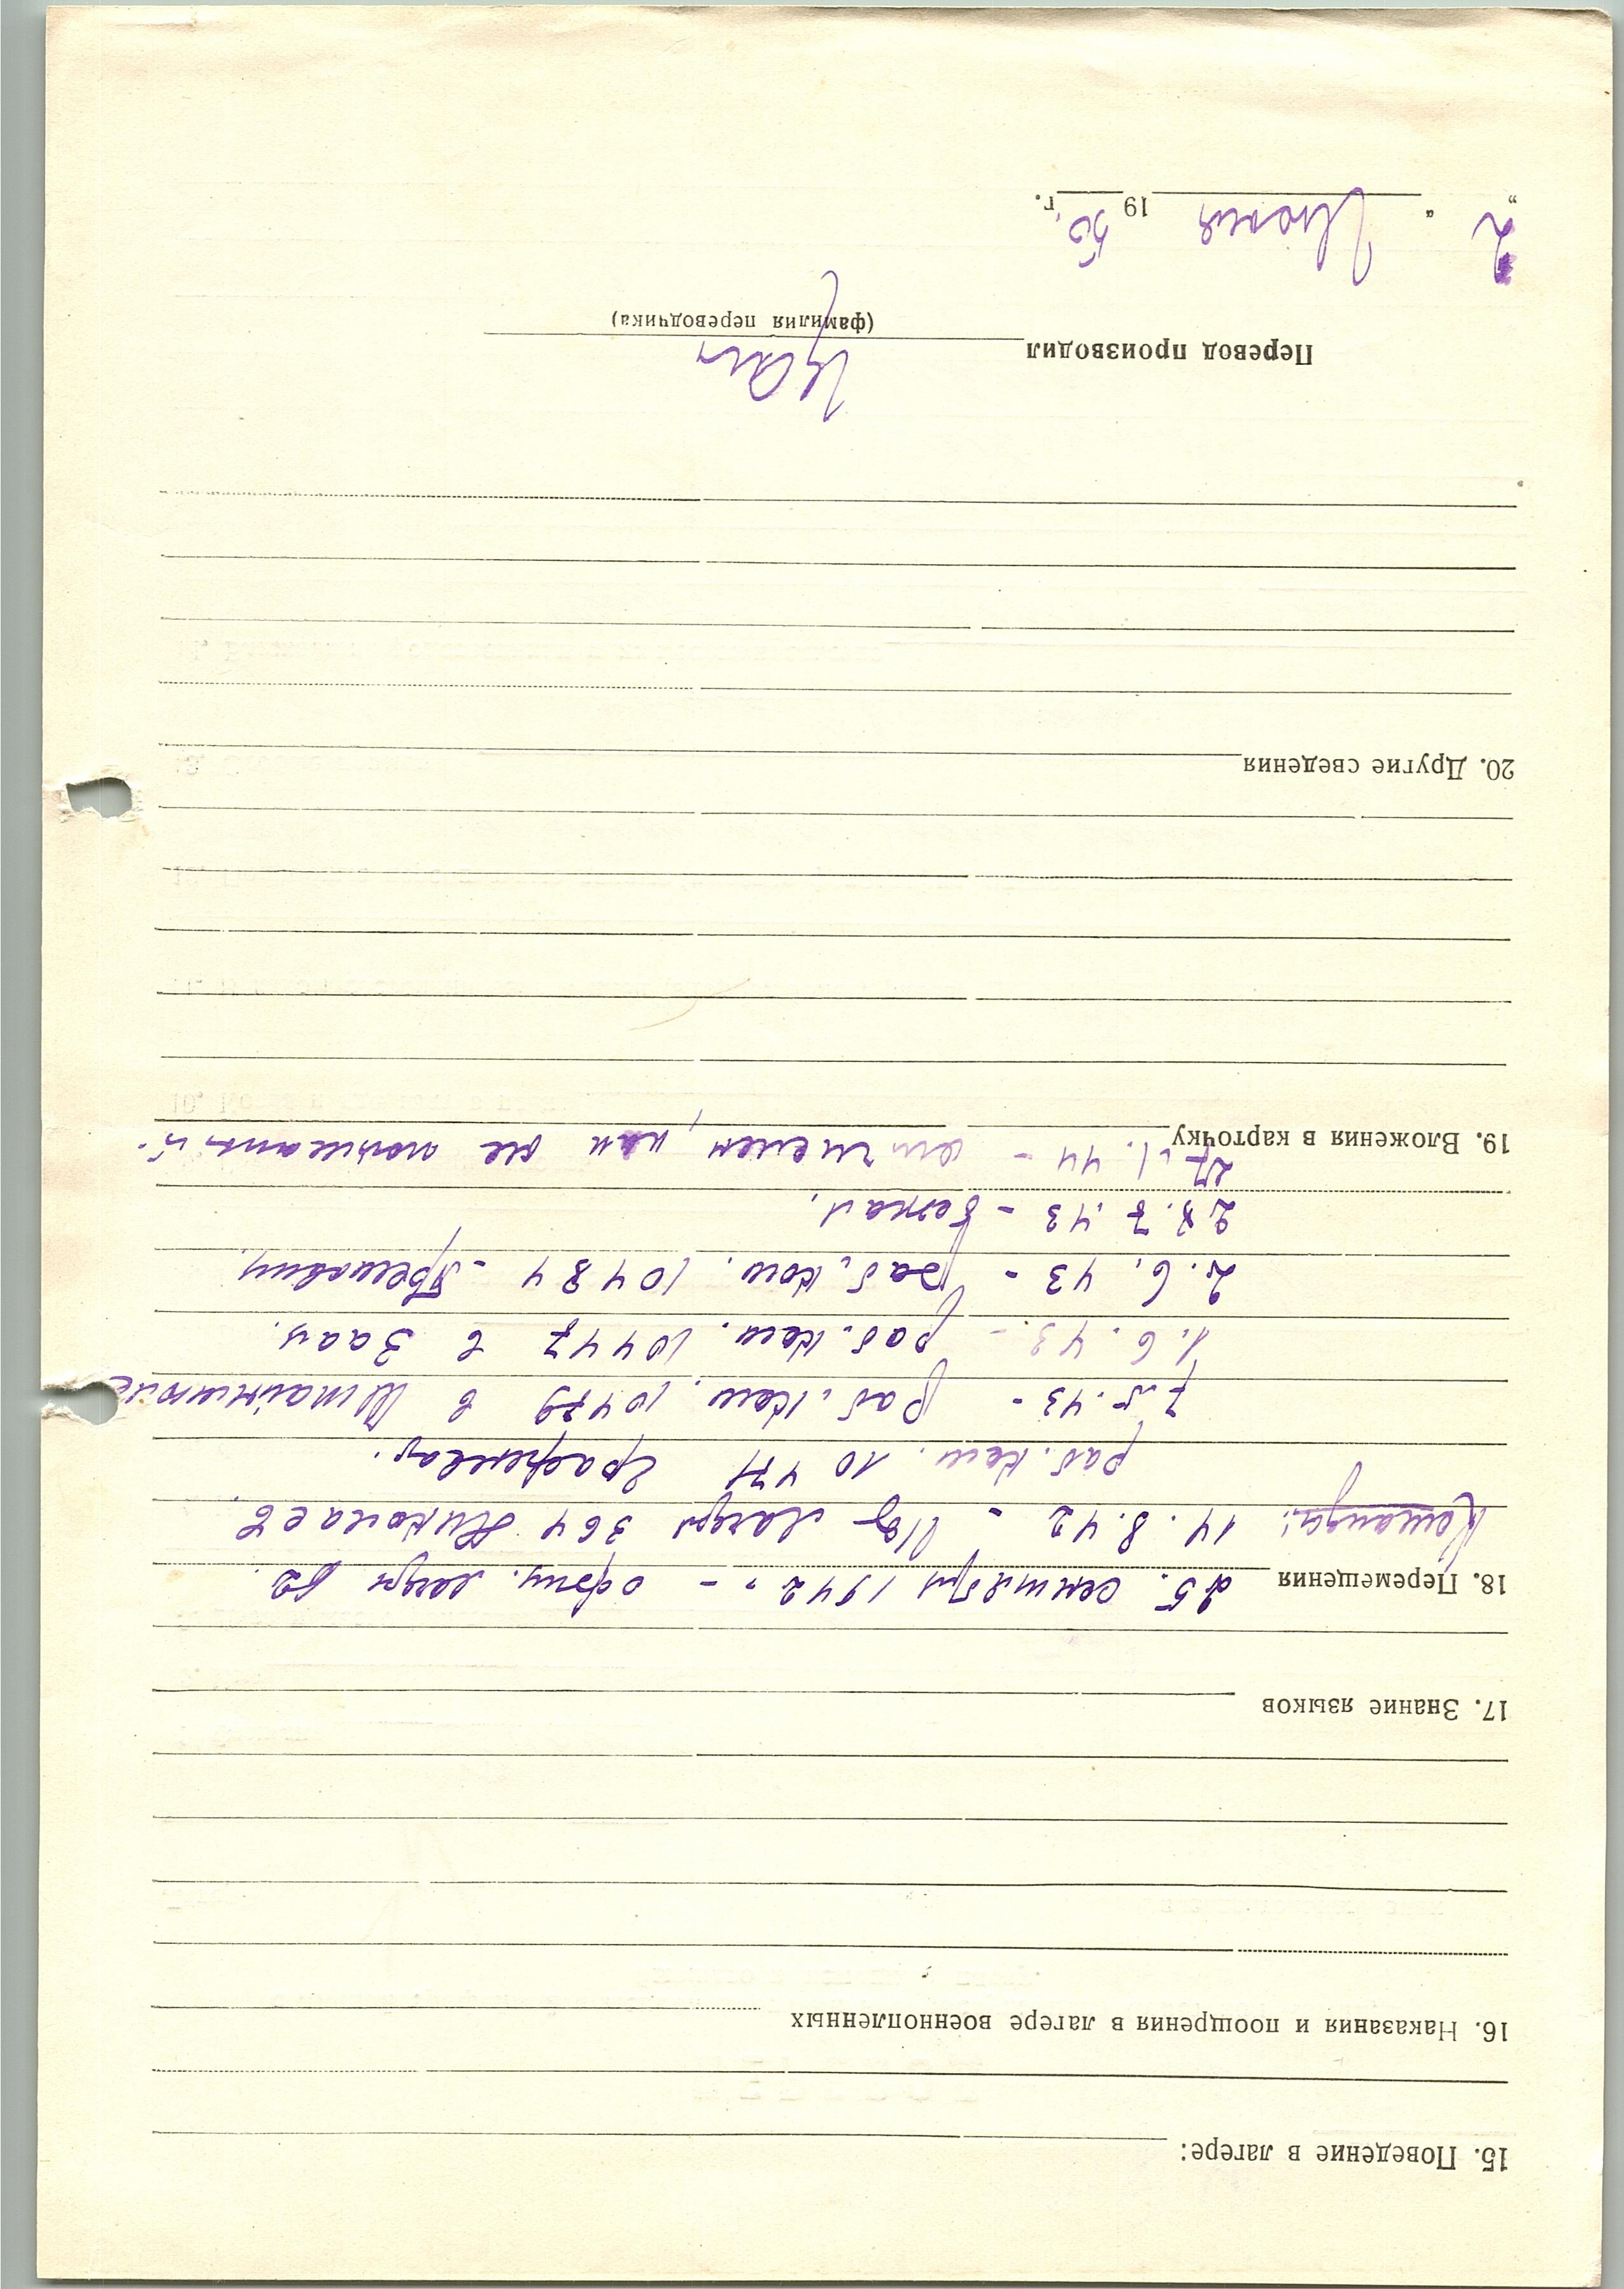 15. Поведение в лагере:
16. Наказания и поощрения в лагере военнопленных
17. Знание языков
18. Перемещения 25. сентября 1942 г. - офиц. лагерь 62.
Команда: 14.8.42 - Из лагеря 364 Николаев.
раб. ком. 10471
7.5.43 - раб. ком. 10479 в
1.6.43 - раб. ком. 10447 в Заан.
2.6.43 - раб. ком. 10484 -
28.7.43 - бежал.
27.1.44 - отмечен, как не пойманный.
19. Вложения в карточку
20. Другие сведения
Перевод производил
(фамилия переводчика)
„2“ Июня 1950 г.